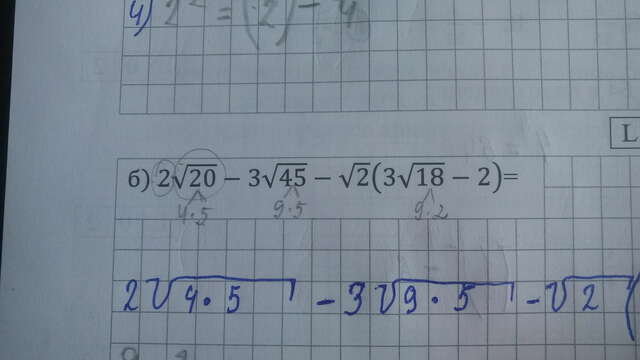 4) 2² = (2) - 4
L
б) 2√20 − 3√45 − √2(3√18 − 2)=
4·5 9·5 9·2
2√4·5 - 3√9·5 - √2 (